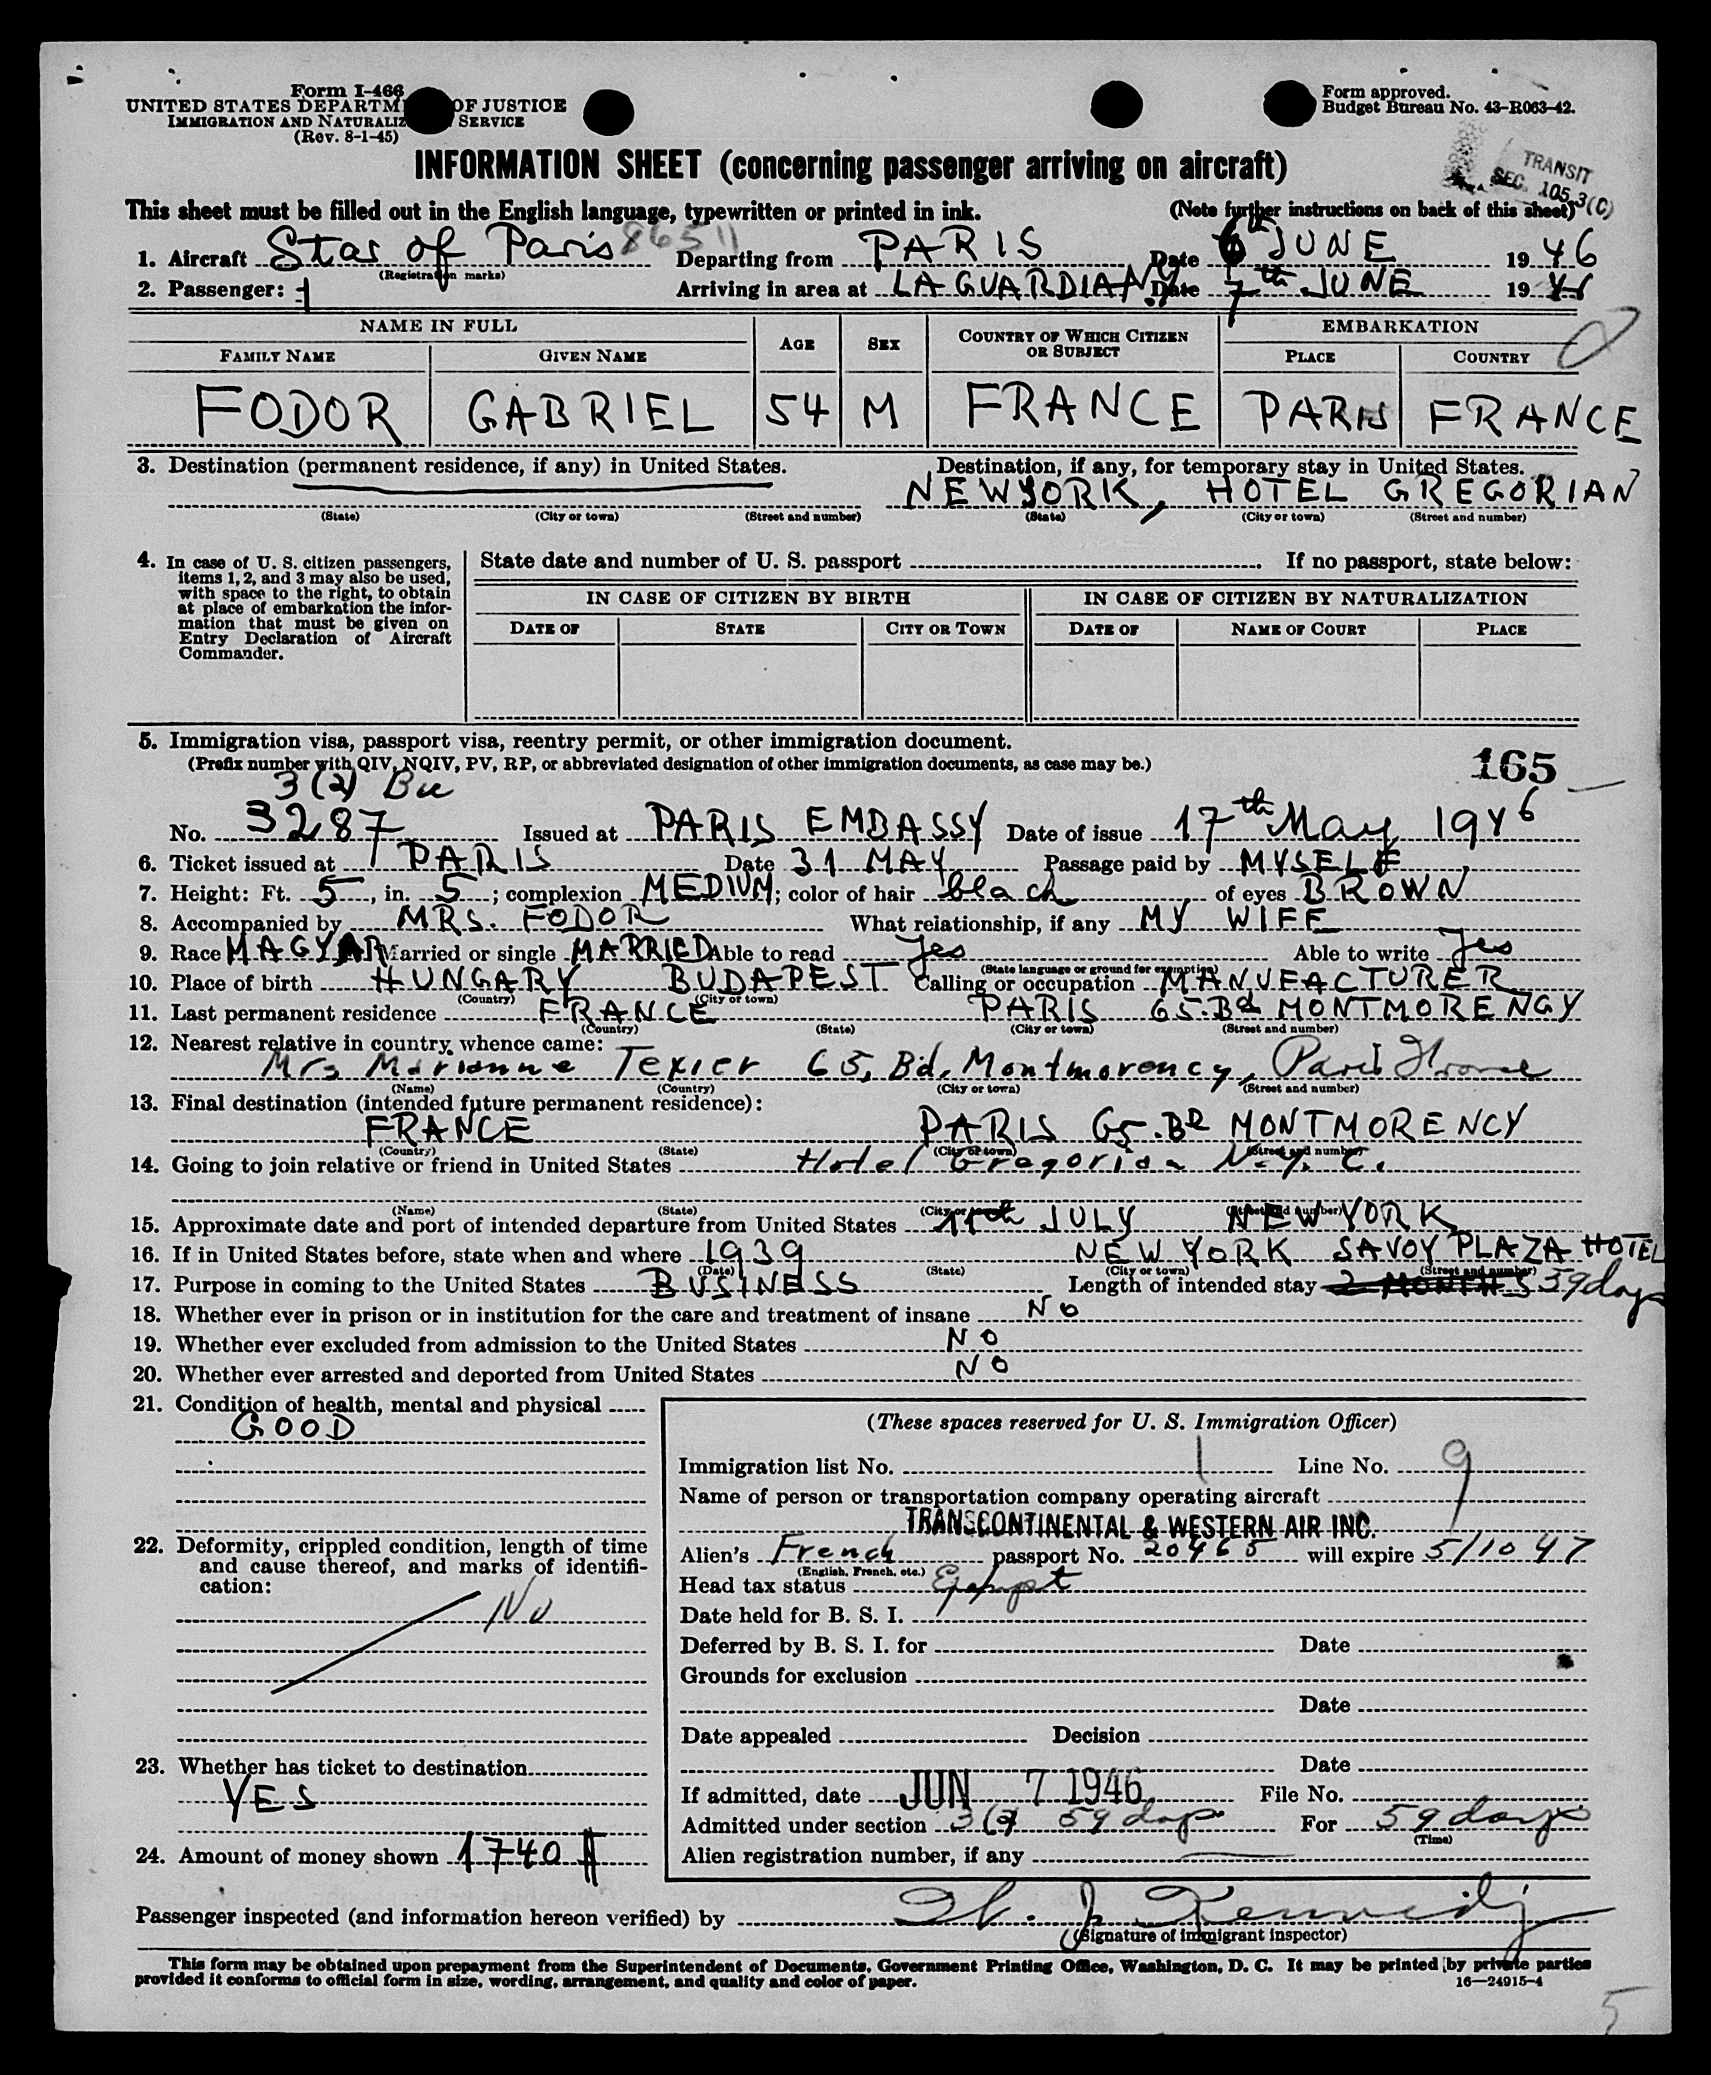 Form I-466
UNITED STATES DEPARTM OF JUSTICE
IMMIGRATION AND NATURALIZ SERVICE
(Rev. 8-1-45)
Form approved.
Budget Bureau No. 43-R063-42.
TRANSIT
SEC. 105.3(C)
INFORMATION SHEET (concerning passenger arriving on aircraft)
This sheet must be filled out in the English language, typewritten or printed in ink. (Note further instructions on back of this sheet)
1. Aircraft Star of Paris 86511 Departing from PARIS Date 6th JUNE 1946
(Registration marks)
2. Passenger: 1 Arriving in area at LA GUARDIA N.Y. Date 7th JUNE 1946
NAME IN FULL AGE SEX COUNTRY OF WHICH CITIZEN OR SUBJECT EMBARKATION
FAMILY NAME GIVEN NAME PLACE COUNTRY
FODOR GABRIEL 54 M FRANCE PARIS FRANCE
3. Destination (permanent residence, if any) in United States. Destination, if any, for temporary stay in United States.
NEW YORK, HOTEL GREGORIAN
(State) (City or town) (Street and number) (State) (City or town) (Street and number)
4. In case of U. S. citizen passengers, items 1, 2, and 3 may also be used, with space to the right, to obtain at place of embarkation the information that must be given on Entry Declaration of Aircraft Commander.
State date and number of U. S. passport If no passport, state below:
IN CASE OF CITIZEN BY BIRTH IN CASE OF CITIZEN BY NATURALIZATION
DATE OF STATE CITY OR TOWN DATE OF NAME OF COURT PLACE
5. Immigration visa, passport visa, reentry permit, or other immigration document.
(Prefix number with QIV, NQIV, PV, RP, or abbreviated designation of other immigration documents, as case may be.)
165
3(2) Bu
No. 3287 Issued at PARIS EMBASSY Date of issue 17th May 1946
6. Ticket issued at PARIS Date 31 MAY Passage paid by MYSELF
7. Height: Ft. 5, in. 5; complexion MEDIUM; color of hair black of eyes BROWN
8. Accompanied by MRS. FODOR What relationship, if any MY WIFE
9. Race MAGYAR Married or single MARRIED Able to read Yes Able to write Yes
(State language or ground for exemption)
10. Place of birth HUNGARY BUDAPEST Calling or occupation MANUFACTURER
(Country) (City or town)
11. Last permanent residence FRANCE PARIS 65.Bd MONTMORENCY
(Country) (State) (City or town) (Street and number)
12. Nearest relative in country whence came:
Mrs Marianne Texier 65, Bd. Montmorency, Paris France
(Name) (Country) (City or town) (Street and number)
13. Final destination (intended future permanent residence):
FRANCE PARIS 65.Bd MONTMORENCY
(Country) (State) (City or town) (Street and number)
14. Going to join relative or friend in United States Hotel Gregorian N.Y.C.
(Name) (State) (City or town) (Street and number)
15. Approximate date and port of intended departure from United States 11th JULY NEW YORK
16. If in United States before, state when and where 1939 NEW YORK SAVOY PLAZA HOTEL
(Date) (State) (City or town) (Street and number)
17. Purpose in coming to the United States BUSINESS Length of intended stay 2 MONTHS 39 days
18. Whether ever in prison or in institution for the care and treatment of insane NO
19. Whether ever excluded from admission to the United States NO
20. Whether ever arrested and deported from United States NO
21. Condition of health, mental and physical
GOOD
22. Deformity, crippled condition, length of time and cause thereof, and marks of identification:
No
23. Whether has ticket to destination
YES
24. Amount of money shown 1740 $
(These spaces reserved for U. S. Immigration Officer)
Immigration list No. 1 Line No. 9
Name of person or transportation company operating aircraft
TRANSCONTINENTAL & WESTERN AIR INC.
Alien's French passport No. 20465 will expire 5/10 47
(English, French, etc.)
Head tax status
Date held for B. S. I.
Deferred by B. S. I. for Date
Grounds for exclusion
Date
Date appealed Decision
Date
If admitted, date JUN 7 1946 File No.
Admitted under section 3(2) 59 days For 59 days
(Time)
Alien registration number, if any
Passenger inspected (and information hereon verified) by W. J. Kennedy
(Signature of immigrant inspector)
This form may be obtained upon prepayment from the Superintendent of Documents, Government Printing Office, Washington, D. C. It may be printed by private parties
provided it conforms to official form in size, wording, arrangement, and quality and color of paper. 16—24915-4
5